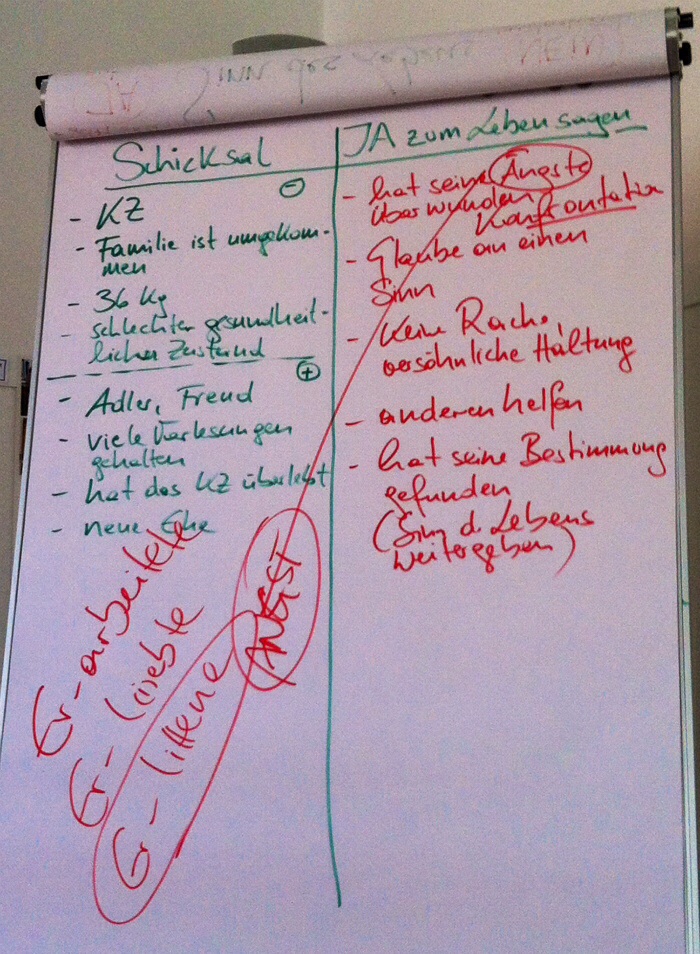 SINN
Schicksal
⊖
- KZ
- Familie ist umgekom-
men
- 36 Kg
- schlechter gesundheit-
licher Zustand
⊕
- Adler, Freud
- viele Vorlesungen
gehalten
- hat das KZ überlebt
- neue Ehe
JA zum Leben sagen
- hat seine Ängste
überwunden
Konfrontation
- Glaube an einen
Sinn
- Keine Rache,
versöhnliche Haltung
- anderen helfen
- hat seine Bestimmung
gefunden
(Sinn d. Lebens
weitergeben)
Er - arbeitete
Er - liebte
Er - littene
ANGST